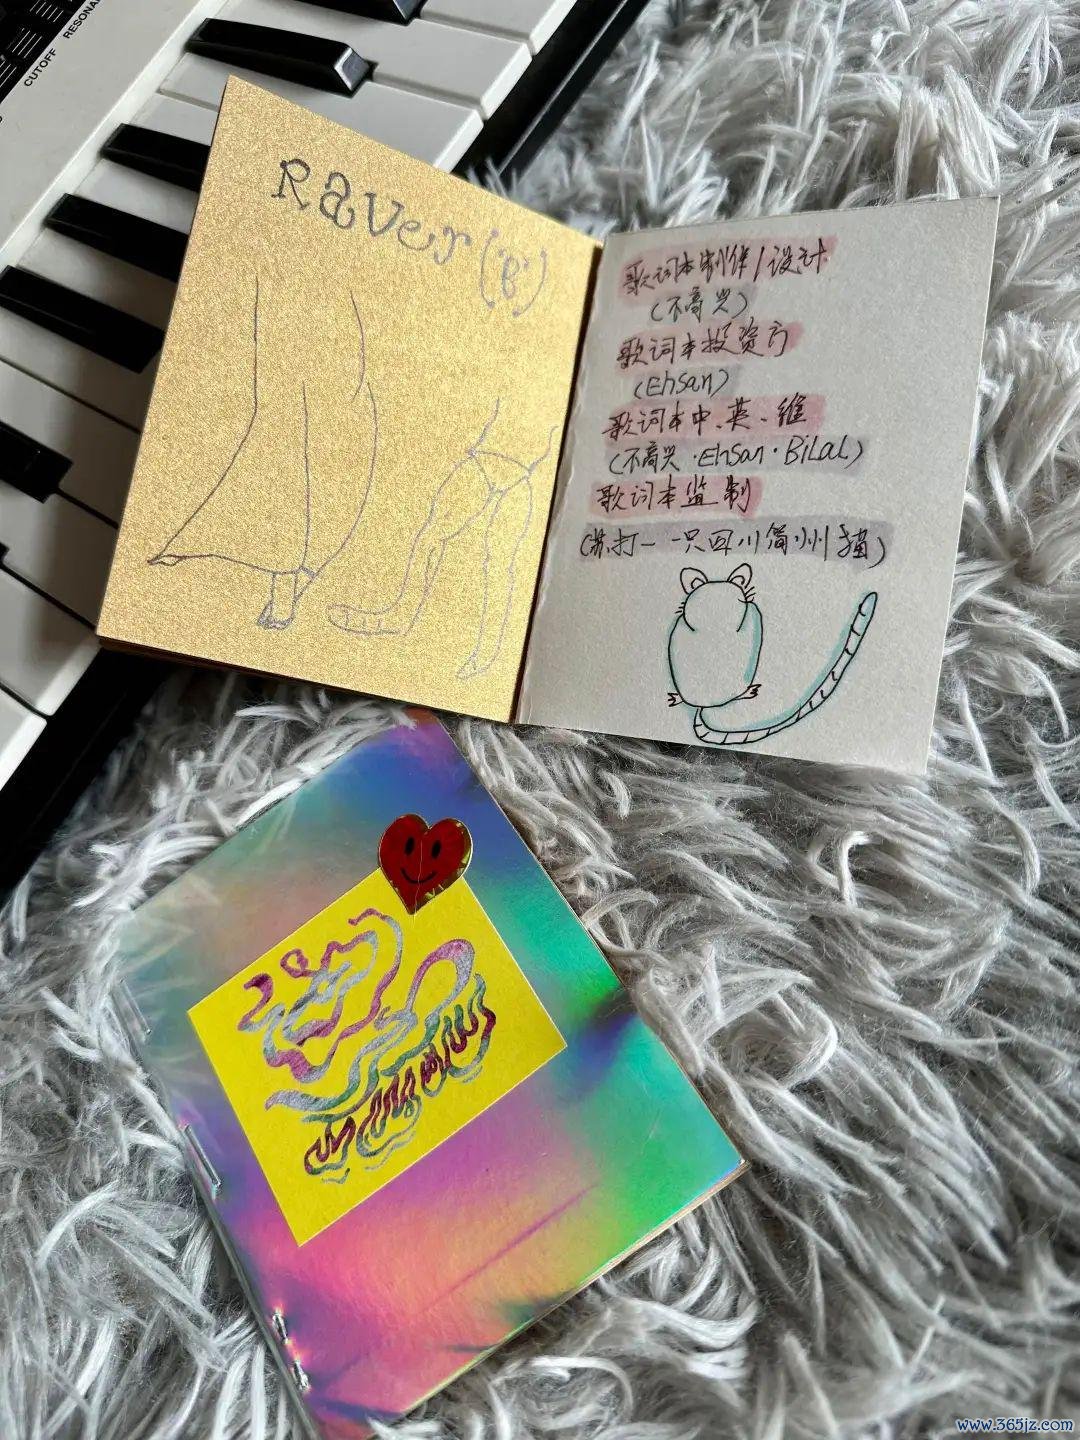 CUTOFF
RESONA
Raver ('B')
歌词本制作/设计
(不高兴)
歌词本投资方
(Ehsan)
歌词本中、英、维
(不高兴·Ehsan·BiLaL)
歌词本监制
(苏打一 一只四川简州猫)
www.365jz.com